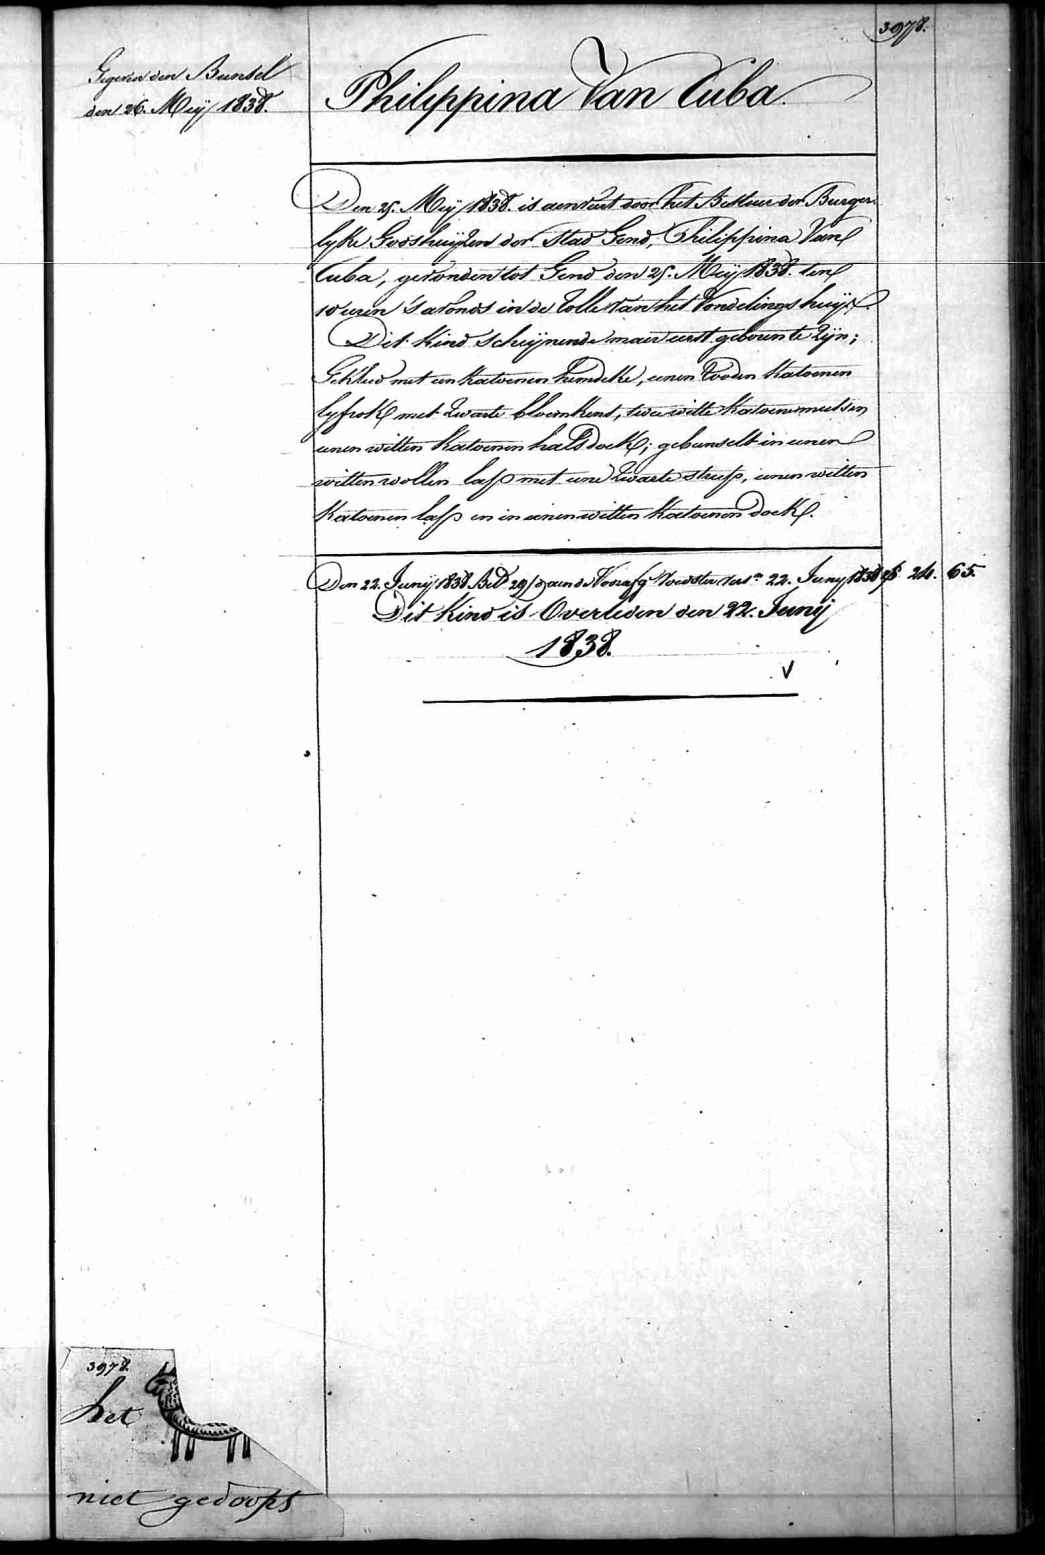 3978.
Gegeven den Bunsel
den 26. Meij 1838.
Philippina Van Cuba.
Den 25. Meij 1838. is aenveirt door het Bestuer der Burger-
lyke Godshuijzen der Stad Gend, Philippina Van
Cuba, gevonden tot Gend den 25. Meij 1838. ten
10 uren 's avonds in de rolle van het Vondelingshuijs.
Dit Kind scheijnende maer eerst geboren te zijn;
Gekleed met een katoenen hemdeke, eenen rooden katoenen
lyfrok met zwarte bloemkens, twee witte katoene mutsen
eenen witten katoenen halsdoek; gebunselt in eenen
witten wollen lasp met eene zwarte streep, eenen witten
katoenen lasp en in eenen witten katoenen doek.
Den 22. Junij 1838 Bet 29/d aen de Voedster 22. Junij 1838 24. 65.
Dit Kind is Overleden den 22. Junij
1838.
V
3978.
het
niet gedoopt